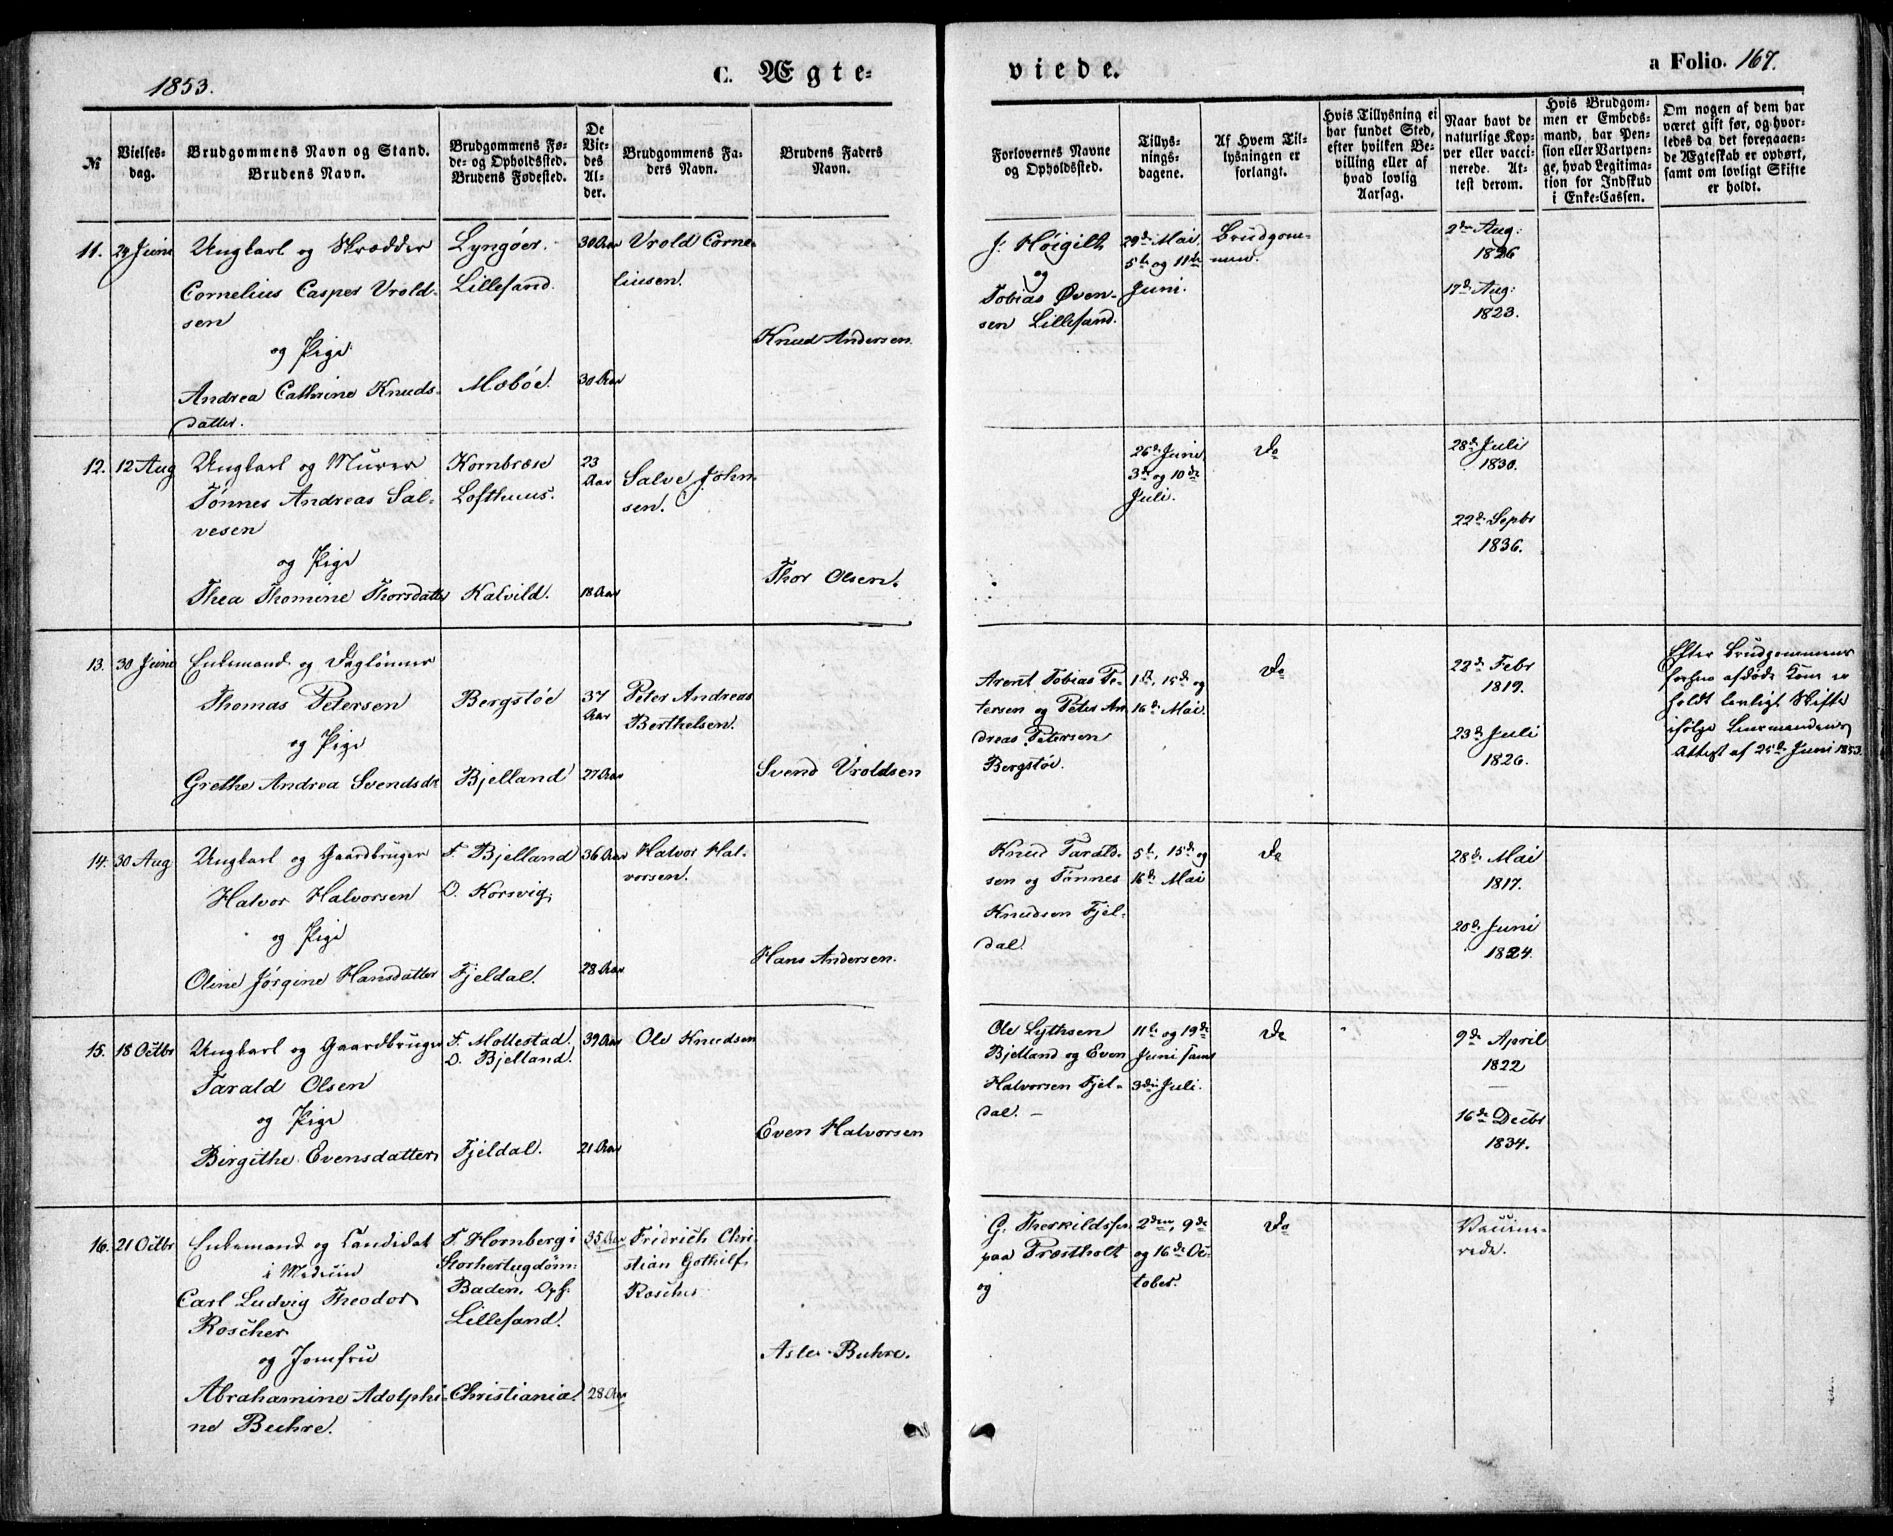 1853.
C. Ægte-
viede.
a Folio. 167.
№
Vielses-
dag.
Brudgommens Navn og Stand.
Brudens Navn.
Brudgommens Fø-
de- og Opholdssted.
Brudens Fødested.
De
Vie-
des
Al-
der.
Brudgommens Fa-
ders Navn.
Brudens Faders
Navn.
Forlovernes Navne
og Opholdssted.
Tillys-
nings-
dagene.
Af Hvem Til-
lysningen er
forlangt.
Hvis Tillysning ei
har fundet Sted,
efter hvilken Be-
villing eller af
hvad lovlig
Aarsag.
Naar havt de
naturlige Kop-
per eller vacci-
nerede. At-
test derom.
Hvis Brudgom-
men er Embeds-
mand, har Pen-
sion eller Vartpen-
ge, hvad Legitima-
tion for Indskud
i Enke-Cassen.
Om nogen af dem har
været gift før, og hvor-
ledes da det foregaaen-
de Ægteskab er ophørt,
samt om lovligt Skifte
er holdt.
11.
24 Juni
Ungkarl og Skrædder
Cornelius Casper Vrold-
sen
og Pige
Andrea Cathrine Knuds-
datter.
Lyngøer.
Lillesand.
Moboe.
30 Aar
30 Aar
Vrold Corne-
liusen.
Knud Andersen.
J. Høigilt
og
Tobias Øven-
sen Lillesand.
29de Mai
5te og 11te
Juni.
Brudgom-
men.
2den Aug:
1826
17de Aug:
1823.
12.
12 Aug
Ungkarl og Murer
Tønnes Andreas Sal-
vesen
og Pige
Thea Thomine Thorsdatter
Kornbræse
Lofthuus.
Kalvild.
23
Aar
18 Aar
Salve John-
sen.
Thor Olsen.
26de Juni
3de og 10de
Juli.
Do
28de Juli
1830.
22de Septbr
1836.
13.
30 Juni
Enkemand og Dagløнner
Thomas Petersen
og Pige
Grethe Andrea Svendsdr
Bergstøe
Bjelland
37
Aar
27 Aar
Peter Andreas
Berthelsen.
Svend Vroldsen
Arent Tobias Pe-
tersen og Peter An
dreas Petersen
Bergstøe.
1ste, 15de og
16de Mai.
Do
22de Febr
1819.
23de Juli
1826.
Efter Brudgommens
forhen afdøde Kone er
holdt lovligt Skifte
ifølge Lensmandens
Attest af 25de Juni 1853.
14.
30 Aug
Ungkarl og Gaardbruger
Halvor Halvorsen
og Pige
Oline Jørgine Hansdatter
F. Bjelland
O. Korsvig.
Fjeldal.
36 Aar
28 Aar
Halvor Hal-
vorsen.
Hans Andersen.
Knud Tarald-
sen og Tønnes
Knudsen Fjel-
dal.
5te, 15de og
16de Mai
Do
28de Mai
1817.
20de Juni
1824.
15.
18 Octbr
Ungkarl og Gaardbruger
Tarald Olsen
og Pige
Birgithe Evensdatter
F. Mollestad.
O. Bjelland.
Fjeldal.
39 Aar
21 Aar
Ole Knudsen
Even Halvorsen
Ole Lythsen
Bjelland og Even
Halvorsen Fjel-
dal.
11te og 19de
Juni samt
3die Juli.
Do
9de April
1822
16de Decbr
1834.
16.
21 Octbr
Enkemand og Candidat
i Medicin
Carl Ludvig Theodor
Roscher
og Jomfru
Abrahamine Adolphi-
ne Buhre.
F. Hornberg i
Storhertugdøm:
Baden. Oph:
Lillesand.
Christiania.
35 Aar
28 Aar
Fridrich Chri
stian Gothilf
Roscher
Asle Buhre.
G. Therkildssen
paa Præstholt
og
2den, 9de
og 16de Oc-
tober.
Do
Vaccine-
rede.